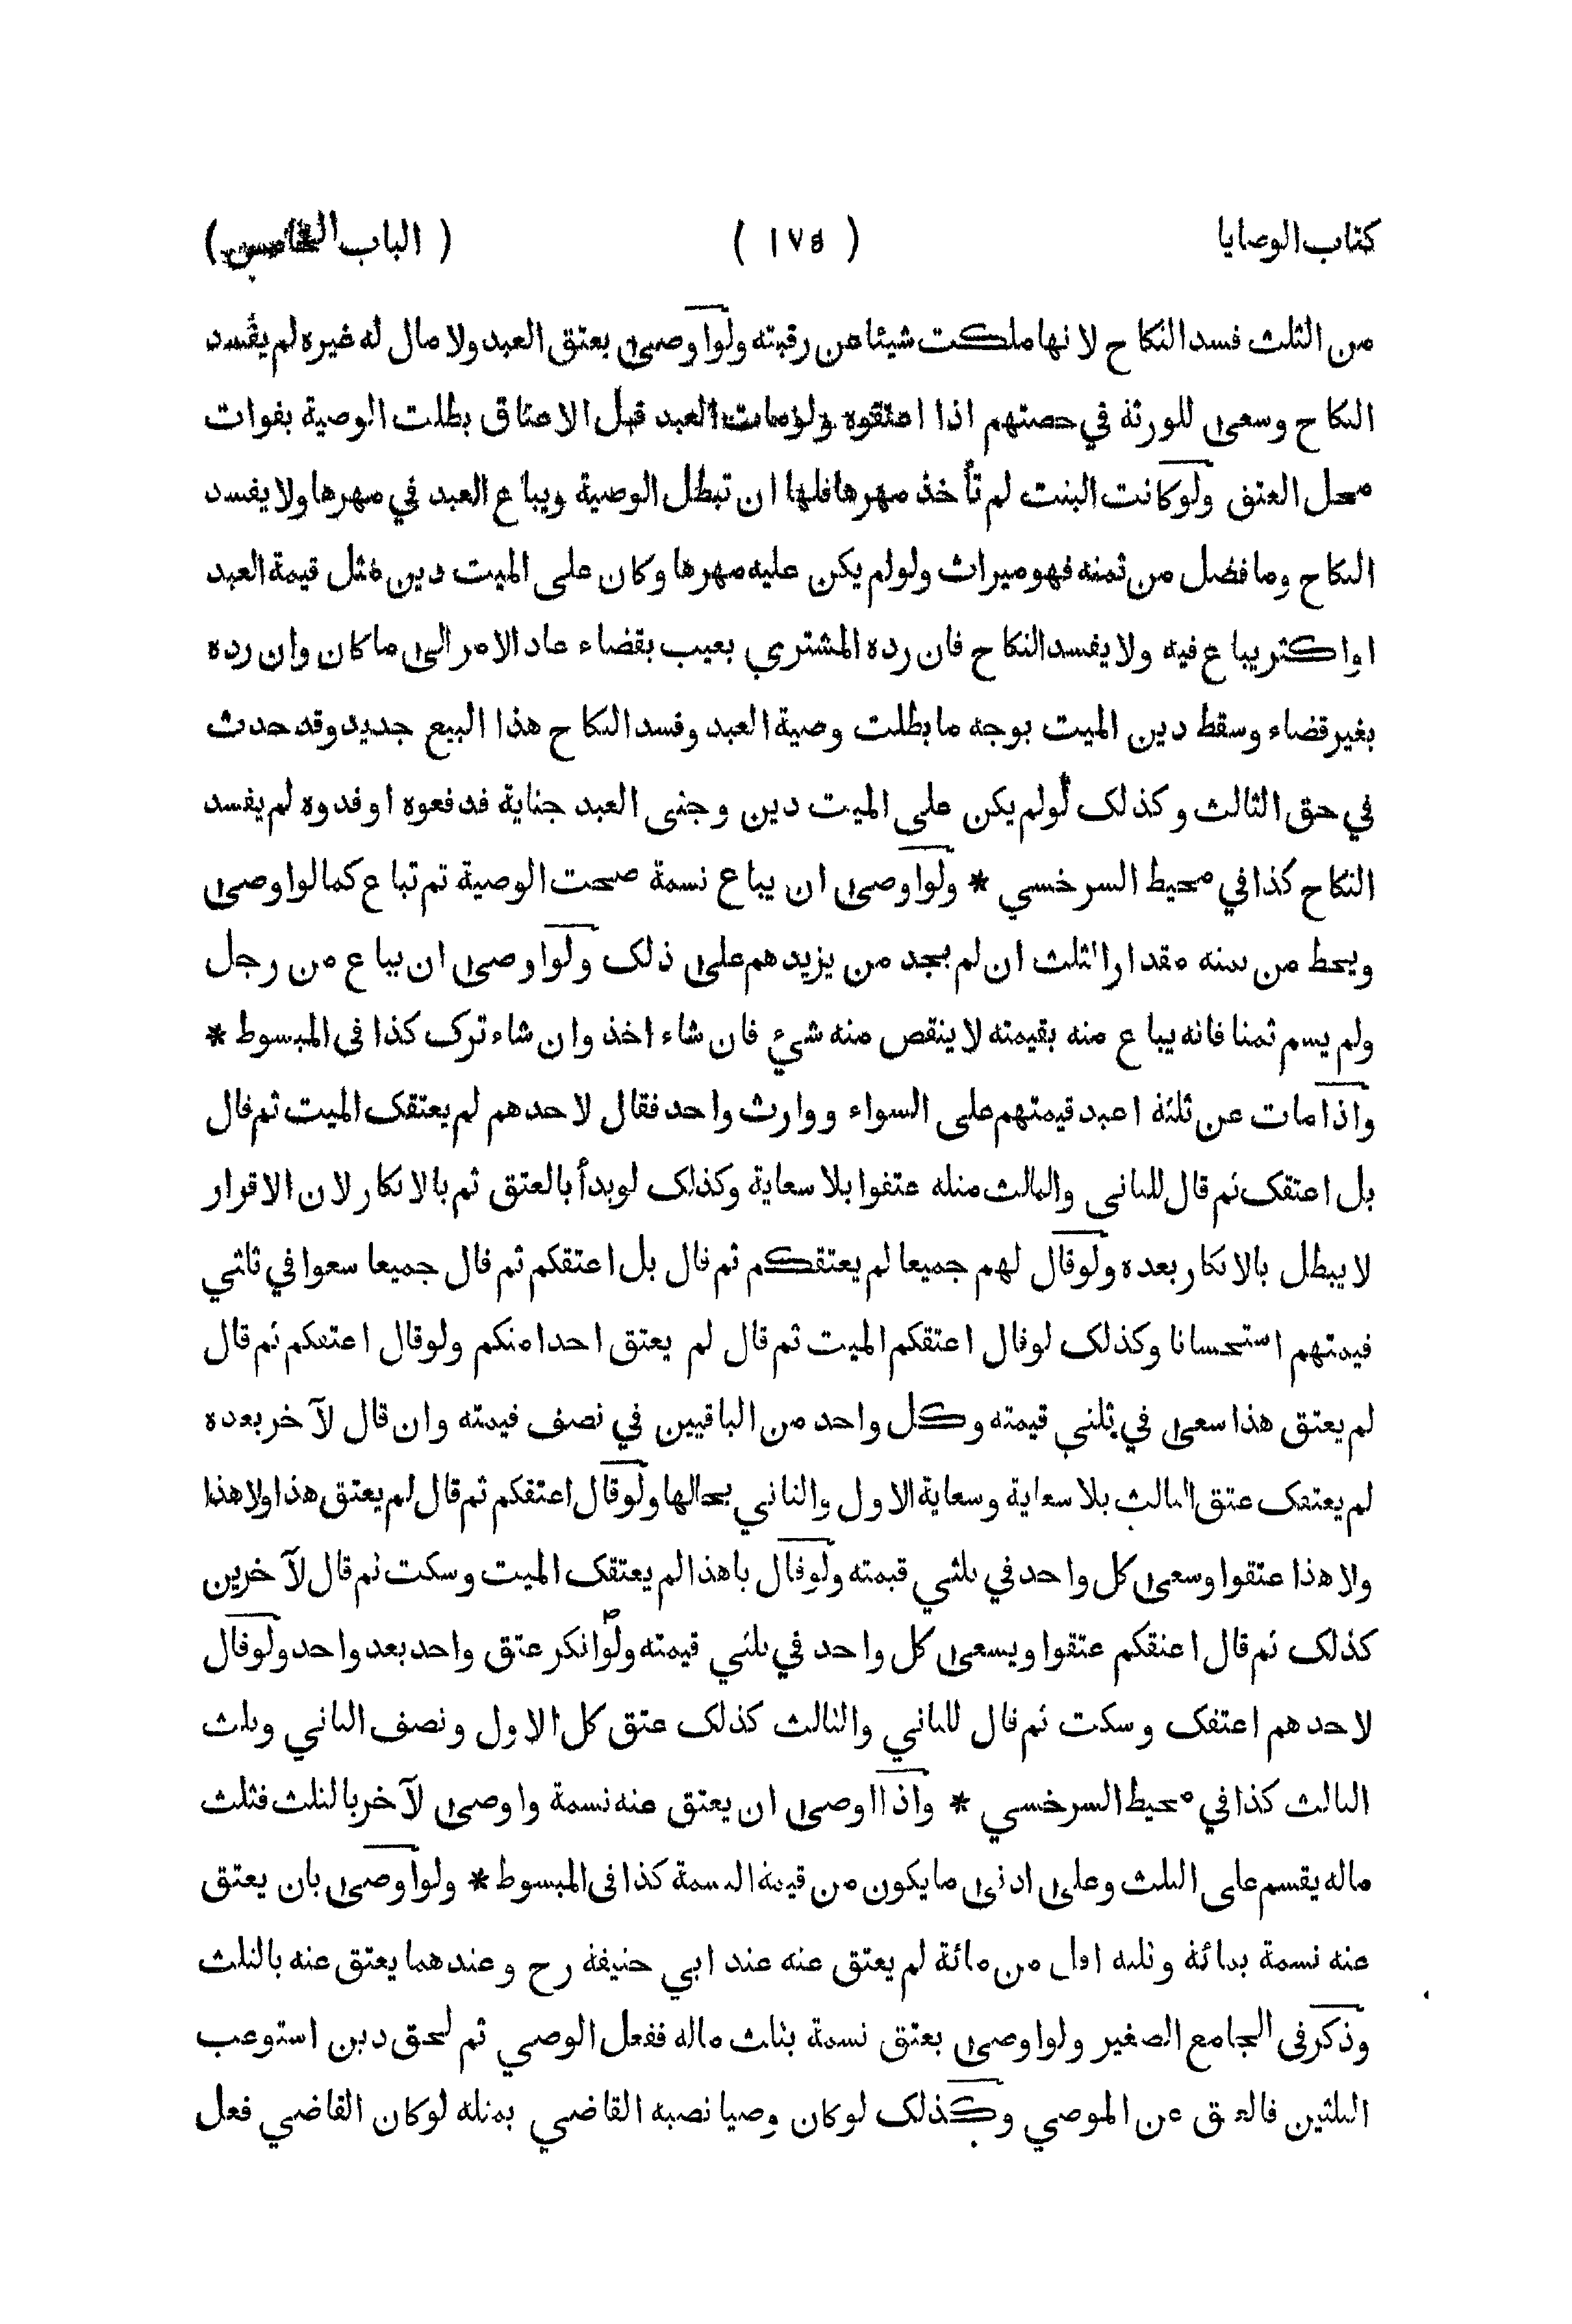 كتاب الوصايا ( ١٧٥ ) ( الباب الخامس )
من الثلث فسد النكاح لانها ملكت شيئا من رقبته ولو اوصى بعتق العبد ولا مال له غيره لم يفسد
النكاح وسعى للورثة في حصتهم اذا اعتقوه ولو مات العبد قبل الاعتاق بطلت الوصية بفوات
محل العتق ولو كانت البنت لم تأخذ مهرها فلها ان تبطل الوصية ويباع العبد في مهرها ولا يفسد
النكاح وما فضل من ثمنه فهو ميراث ولو لم يكن عليه مهرها وكان على الميت دين مثل قيمة العبد
او اكثر يباع فيه ولا يفسد النكاح فان رده المشتري بعيب بقضاء عاد الامر الى ما كان وان رده
بغير قضاء وسقط دين الميت بوجه ما بطلت وصية العبد وفسد النكاح هذا البيع جديد وقد حدث
في حق الثالث وكذلك لو لم يكن على الميت دين وجنى العبد جناية فدفعوه او فدوه لم يفسد
النكاح كذا في محيط السرخسي * ولو اوصى ان يباع نسمة صحت الوصية ثم تباع كما لو اوصى
ويحط من ثمنه مقدار الثلث ان لم يجد من يزيدهم على ذلك ولو اوصى ان يباع من رجل
ولم يسم ثمنا فانه يباع منه بقيمته لا ينقص منه شيء فان شاء اخذ وان شاء ترك كذا فى المبسوط *
واذا مات عن ثلثة اعبد قيمتهم على السواء ووارث واحد فقال لاحدهم لم يعتقك الميت ثم قال
بل اعتقك ثم قال للثاني والثالث مثله عتقوا بلا سعاية وكذلك لو بدأ بالعتق ثم بالانكار لان الاقرار
لا يبطل بالانكار بعده ولو قال لهم جميعا لم يعتقكم ثم قال بل اعتقكم ثم قال جميعا سعوا في ثلثي
قيمتهم استحسانا وكذلك لو قال اعتقكم الميت ثم قال لم يعتق احدا منكم ولو قال اعتقكم ثم قال
لم يعتق هذا سعى في ثلثي قيمته وكل واحد من الباقيين في نصف قيمته وان قال لآخر بعده
لم يعتقك عتق الثالث بلا سعاية وسعاية الاول والثاني بحالها ولو قال اعتقكم ثم قال لم يعتق هذا ولا هذا
ولا هذا عتقوا وسعى كل واحد في ثلثي قيمته ولو قال باهذا لم يعتقك الميت وسكت ثم قال لآخرين
كذلك ثم قال اعتقكم عتقوا ويسعى كل واحد في ثلثي قيمته ولو انكر عتق واحد بعد واحد ولو قال
لاحدهم اعتقك وسكت ثم قال للثاني والثالث كذلك عتق كل الاول ونصف الثاني وثلث
الثالث كذا في محيط السرخسي * واذا اوصى ان يعتق عنه نسمة واوصى لآخر بالثلث فثلث
ماله يقسم على الثلث وعلى ادنى ما يكون من قيمة النسمة كذا فى المبسوط * ولو اوصى بان يعتق
عنه نسمة بمائة وثلثه اقل من مائة لم يعتق عنه عند ابي حنيفة رح وعندهما يعتق عنه بالثلث
وذكر فى الجامع الصغير ولو اوصى بعتق نسمة بثلث ماله ففعل الوصي ثم لحق دين استوعب
الثلثين فالعتق عن الموصي وكذلك لو كان وصيا نصبه القاضي بمثله لو كان القاضي فعل